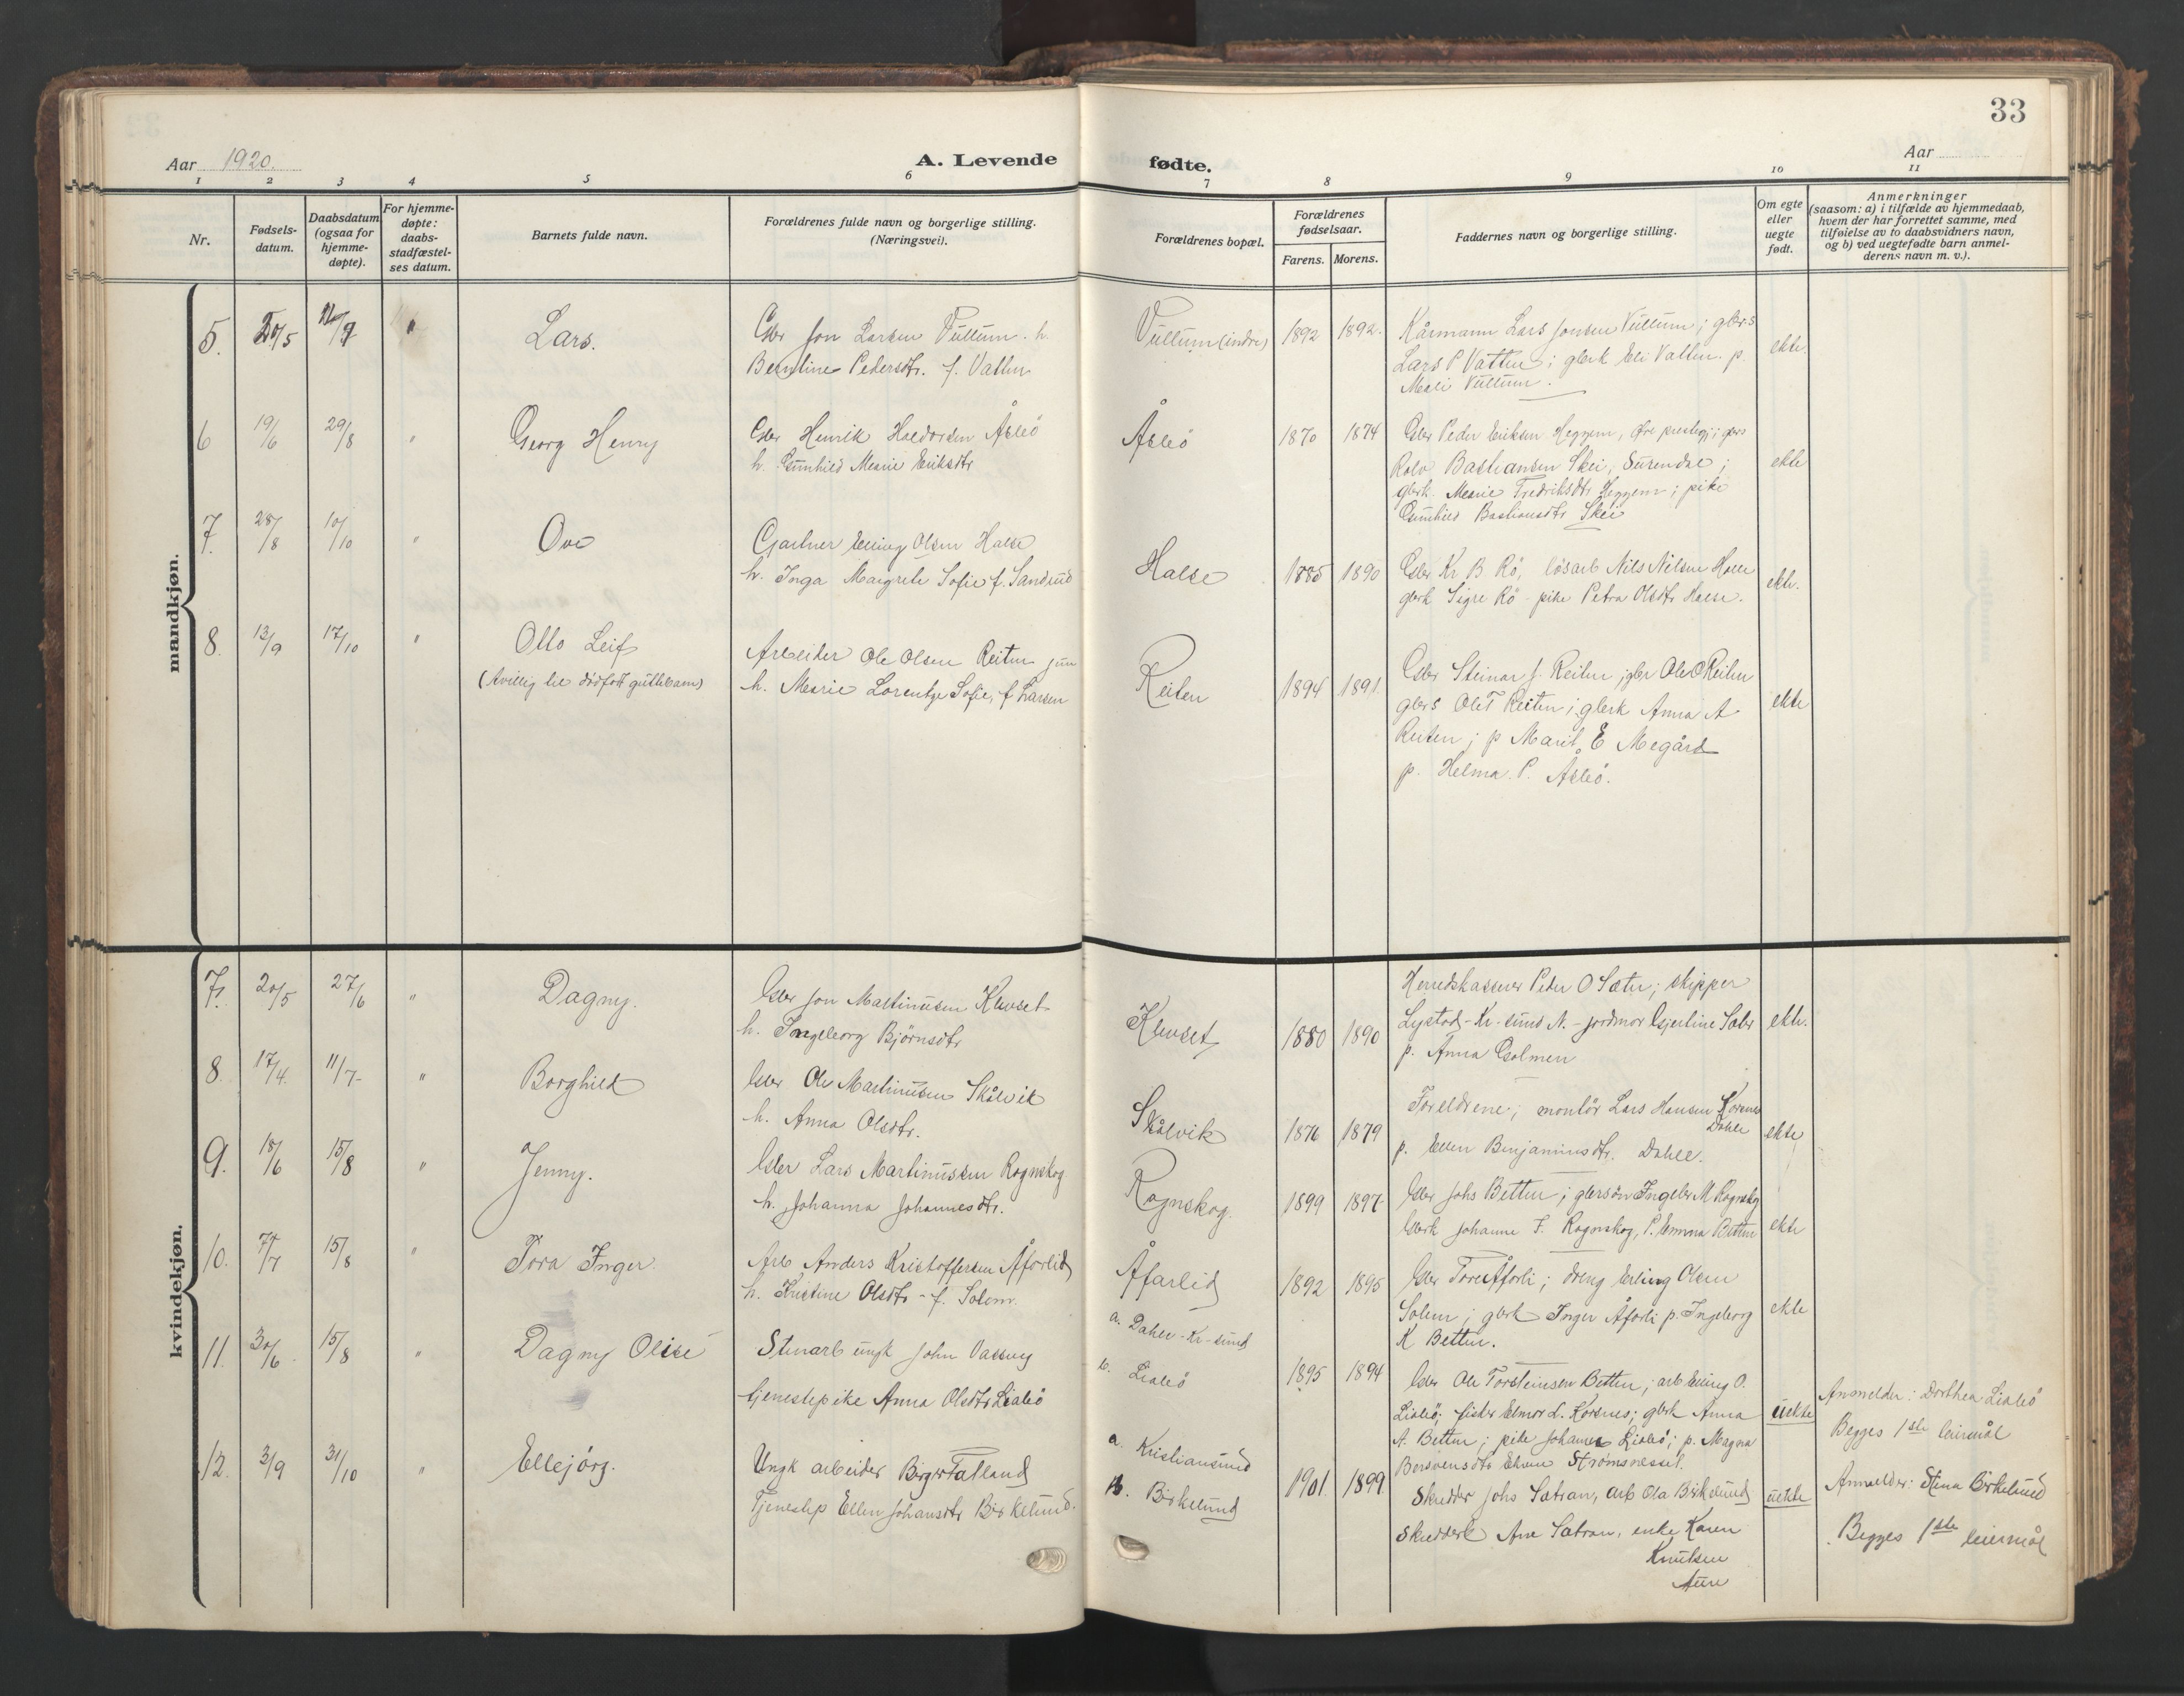 33
Aar 1920.
A. Levende fødte.
Aar
1 2 3 4 5 6 7 8 9 10 11
Nr.
Fødsels-
datum.
Daabsdatum
(ogsaa for
hjemme-
døpte).
For hjemme-
døpte:
daabs-
stadfæstel-
ses datum.
Barnets fulde navn.
Forældrenes fulde navn og borgerlige stilling.
(Næringsvei).
Forældrenes bopæl.
Forældrenes
fødselsaar.
Farens. Morens.
Faddernes navn og borgerlige stilling.
Om egte
eller
uegte
født.
Anmerkninger
(saasom: a) i tilfælde av hjemmedaab,
hvem der har forrettet samme, med
tilføielse av to daabsvidners navn,
og b) ved uegtefødte barn anmel-
derens navn m. v.).
mandkjøn.
5. 20/5 "
Lars.
Gbr Jon Larsen Vullum. h.
Berntine Pedersdtr. f. Vatten
Vullum (indre)
1892 1892.
Kårmann Lars Jonsen Vullum; gbr.s
Lars P Vatten; gbrk Eli Vatten. p.
Mali Vullum.
ekte.
6 19/6 29/8 "
Georg Henry
Gbr Henrik Haldorsen Åsbö
h. Gunhild Marie Eriksdtr
Åsbö
1870 1874
Gbr Peder Eriksen Heggem, Øre prestegj; gbrs
Rolv Bastiansen Skei, Surendal;
gbrk. Marie Fredriksdtr Heggem; pike
Gunhild Bastiansdtr Skei
ekte
7. 28/8 10/10 "
Ove
Gartner Elling Olsen Halse
h. Inga Margrete Sofie f. Sandnud
Halse
1885 1890
Gbr. Kr B Rö, lösarb Nils Nilsen Halse
gbrk Sigre Rö - pike Petra Olsdtr Halse.
ekte.
8. 13/9 17/10 "
Otto Leif
(tvillig til dödfödt guttebarn)
Arbeider Ole Olsen Reiten jun
h. Marie Lorentze Sofie, f. Larsen
Reiten
1894 1891.
Gbr Steinar J. Reiten; gbr Ole O Reiten
gbrs Ole T Reiten; gbrk Anna A
Reiten; p Marit E Megård
p. Helma P. Åsbö.
ekte
kvindekjøn.
7. 20/5 27/6 "
Dagny.
Gbr Jon Martinusen Klevset
h. Ingeborg Björnsdtr
Klevset
1880 1890
Herredskasserer Peder O Sæter; skipper
Lystad - Kr-sund N. - jordmor Gjertine Sæter
p. Anna Golmen
ekte.
8. 17/4. 11/7- "
Borghild
Gbr Ole Martinusen Skålvik
h. Anna Olsdtr.
Skålvik
1876 1879
Foreldrene; montör Lars Hansen Korsnes
Dahle
p. Ellen Benjaminsdtr. Dahle.
ekte
9. 18/6 15/8 "
Jenny.
Gbr Lars Martinussen Rognskog
h. Johanna Johannesdtr.
Rognskog.
1899 1897-
Gbr Johs Betten; gbrsön Ingebr M Rognskog
Gbrk Johanne F. Rognskog, P. Emma Betten
ekte
10. 7/7 15/8 "
Tora Inger
Arb Anders Kristoffersen Åfarlid
h. Kristine Olsdtr - f. Solem.
Åfarlid
1892 1895
Gbr Tore Åfarli; dreng Erling Olsen
Solem; gbrk Inger Åfarli p. Ingeborg
K Betten.
ekte
11. 30/6 15/8 "
Dagny Olise
Stenarb ungk John Vassnes
tjenestepike Anna Olsdtr Liabö
a. Dahle - Kr-sund
b. Liabö
1895 1894
Gbr Ole Torsteinsen Betten; arb Elling O.
Liabö; fisker Elmer L. Korsnes; gbrk Anna
A. Betten; pike Johanna Liabö; p. Magna
Strømsnesset.
uekte
Anmelder: Dorthea Liabö
Begges 1ste leiermål
12. 3/9 31/10 "
Ellejörg.
Ungk arbeider Birger Tatland
Tjenestep Ellen Johansdtr Birkelund.
a. Kristiansund
b. Birkelund
1901. 1899
Skredder Johs Satran, arb Ola Birkelund
Skredderk Ane Satran, enke Karen
Knutsen
Aure
uekte
Anmelder: Stina Birkelund
Begges 1ste leiermål